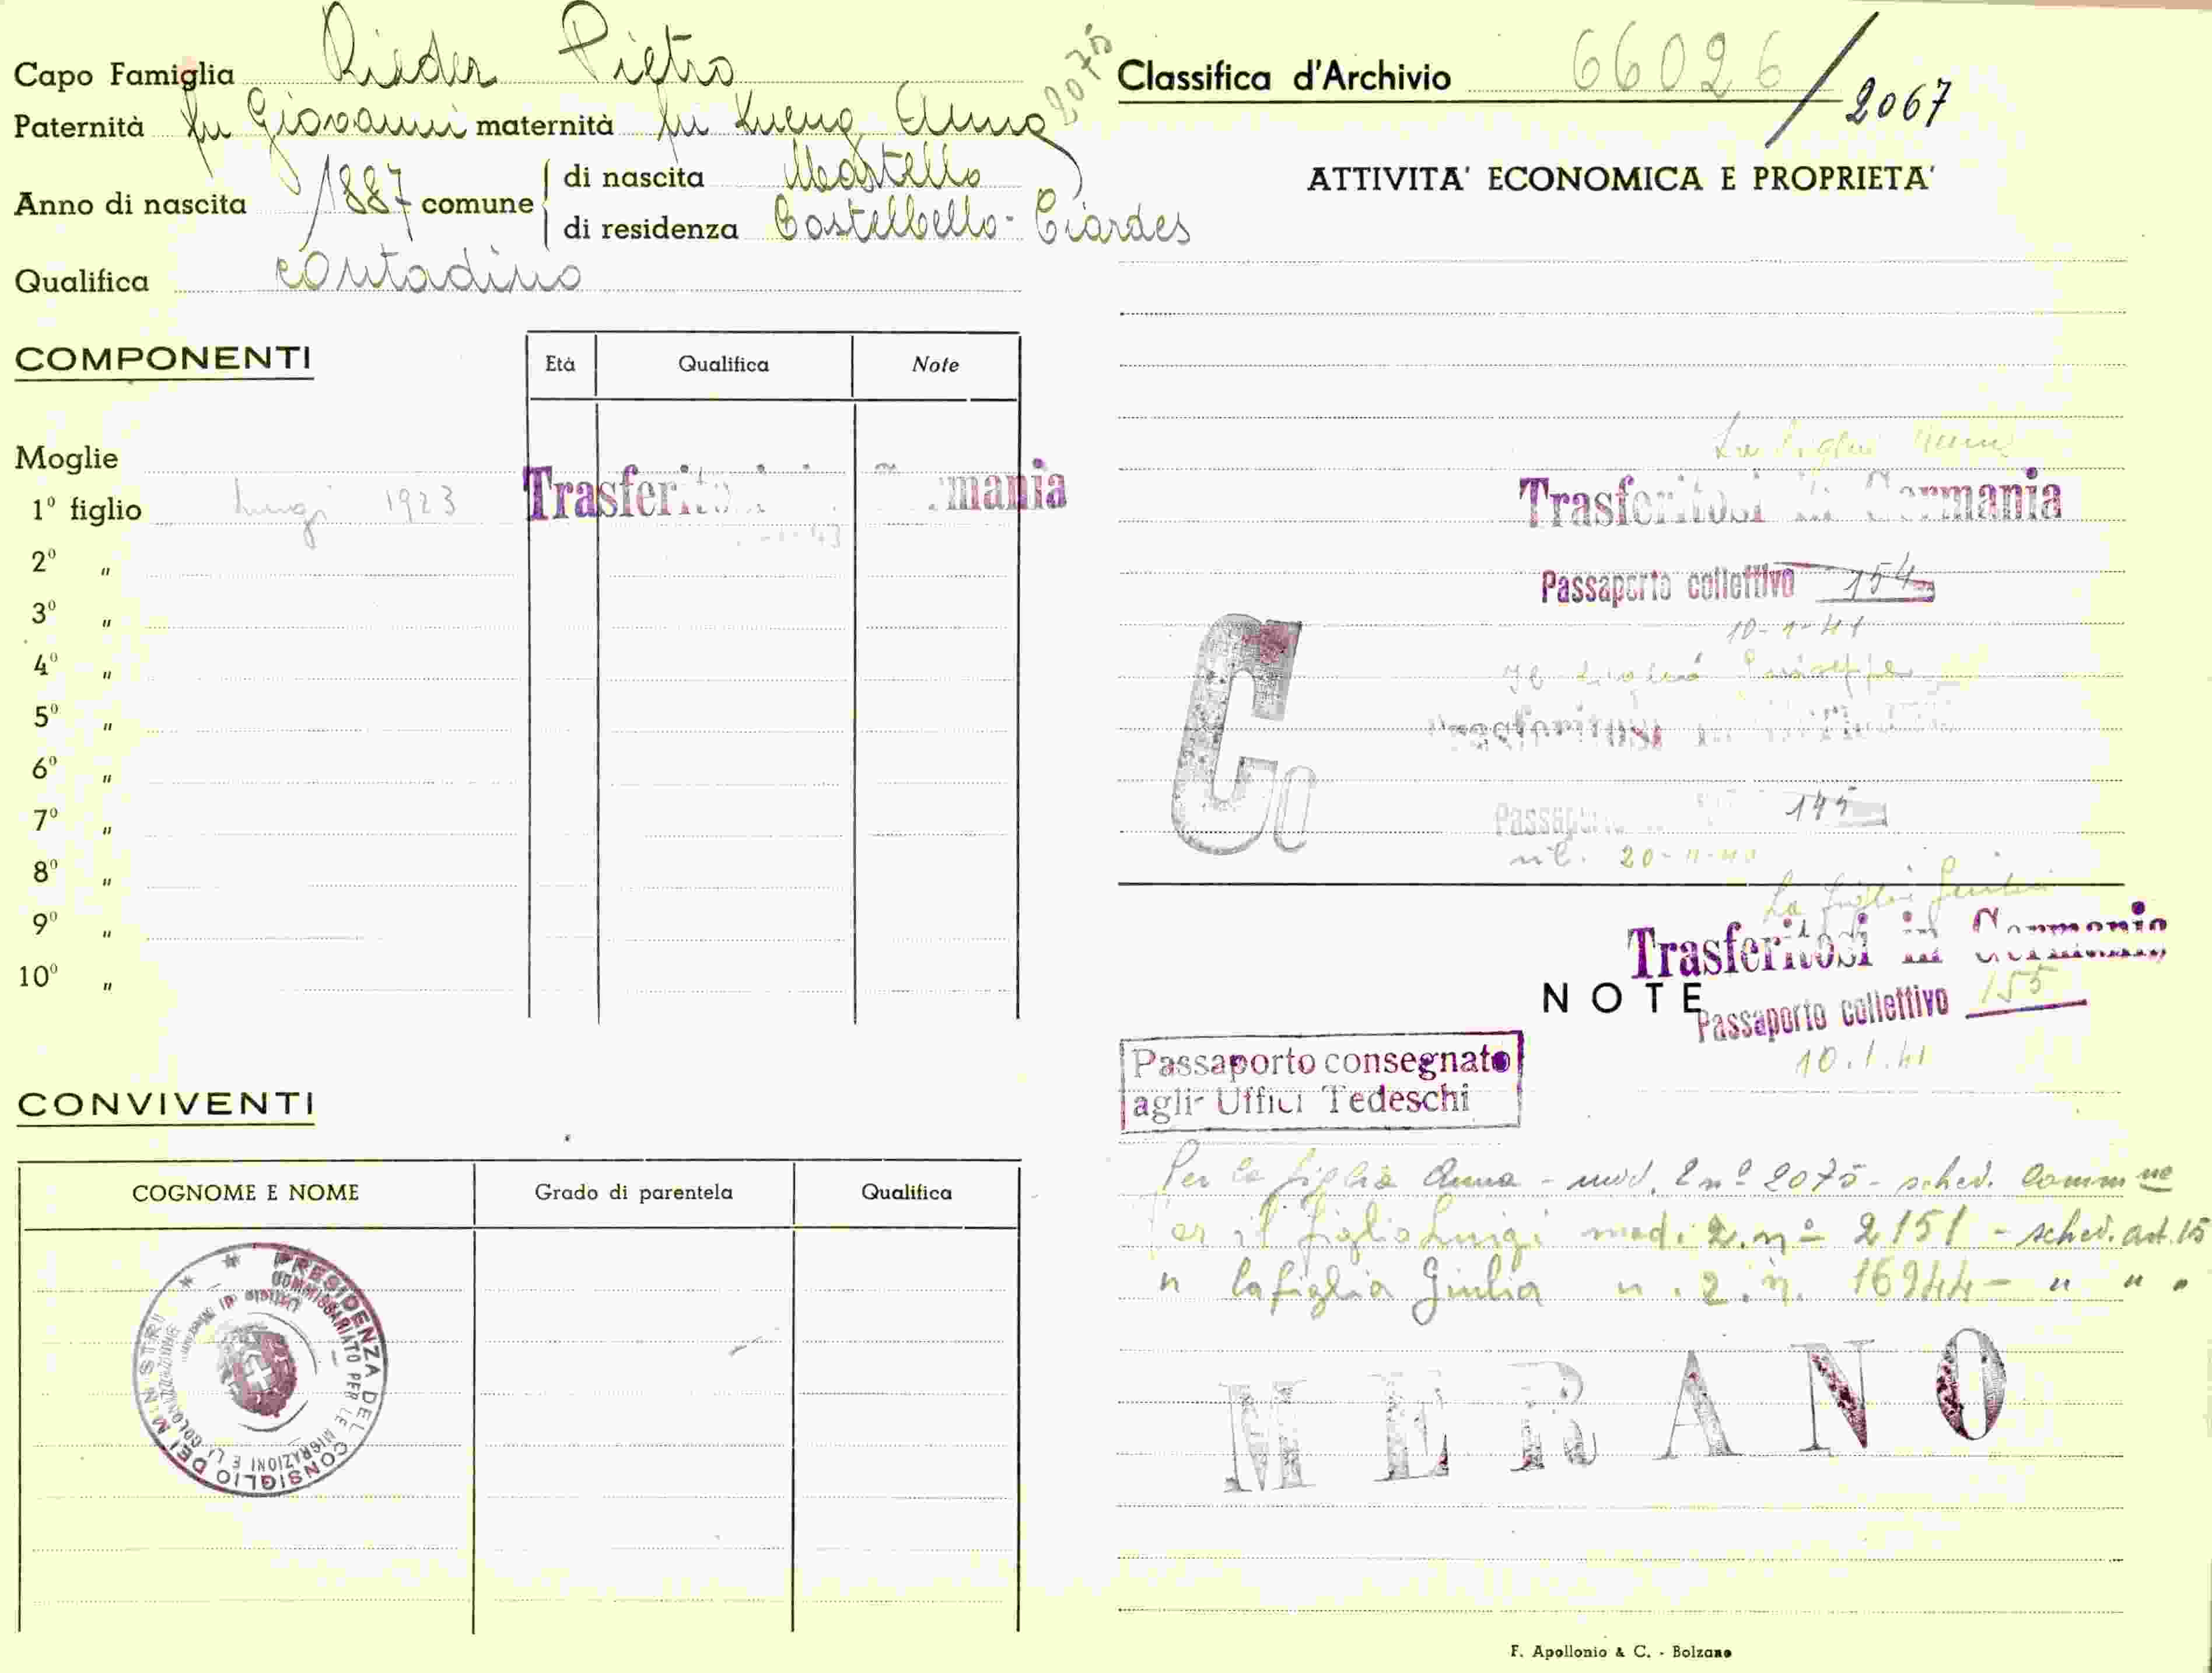 Capo Famiglia Rieder Pietro
Paternità fu Giovanni maternità fu Kueng Anna 2075
Anno di nascita 1887 comune di nascita Martello
di residenza Castelbello-Ciardes
Qualifica contadino
COMPONENTI
Età Qualifica Note
Moglie
1º figlio Luigi 1923 Trasferitosi in Germania
2º "
3º "
4º "
5º "
6º "
7º "
8º "
9º "
10º "
CONVIVENTI
COGNOME E NOME Grado di parentela Qualifica
PRESIDENZA DEL CONSIGLIO DEI MINISTRI
COMMISSARIATO PER LE MIGRAZIONI E LA COLONIZZAZIONE
Classifica d'Archivio 66026/2067
ATTIVITA' ECONOMICA E PROPRIETA'
La figlia
Trasferitosi in Germania
Passaporto collettivo 154
10-1-41
Il Giuseppe
Trasferitosi in
Co
Passaporto 145
20-11-40
La figlia Giulia
Trasferitosi in Germania
NOTE
Passaporto collettivo 155
10.1.41
Passaporto consegnato
agli Uffici Tedeschi
Per la figlia Anna - mod. 2 nº 2075 - sched. Comm ne
Per il figlio Luigi mod. 2. nº 2151 - sched. art. 15
" la figlia Giulia " . 2. n. 16944 - " " "
MERANO
F. Apollonio & C. - Bolzano